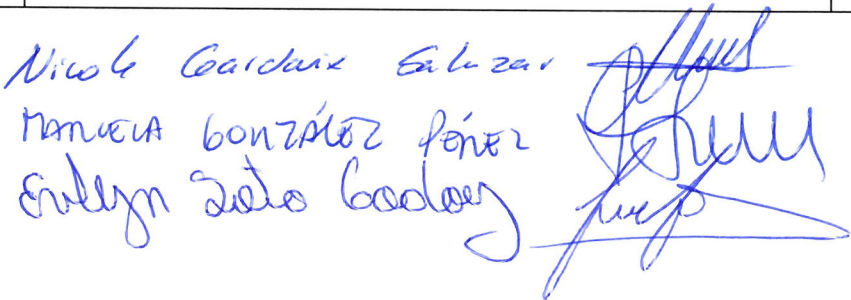 Nicole Salazar
MANUELA GONZÁLEZ PÉREZ
Evelyn Soto Godoy